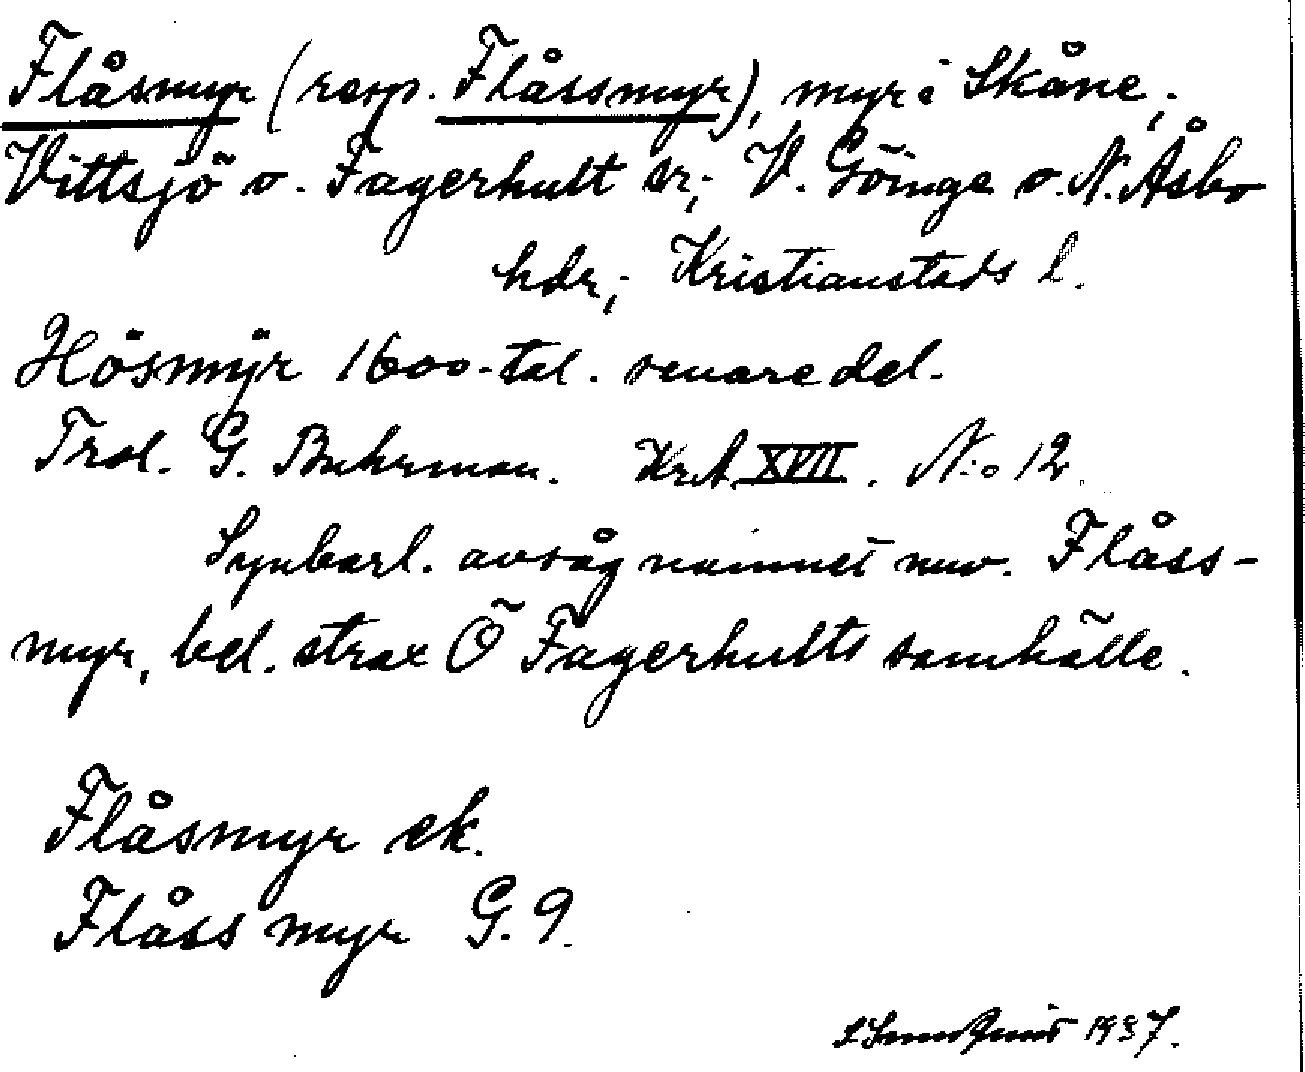 Flåsmyr (resp. Flåssmyr), myr i Skåne,
Vittsjö o. Fagerhult sr; V. Göinge o. N. Åsbo
hdr; Kristianstads l.
Hösmÿr 1600-tal. senare del.
Trol. G. Buhrman. KrA XVII. No 12.
Synbarl. avsåg namnet nuv. Flåss-
myr, bel. strax Ö Fagerhults samhälle.
Flåsmyr ek.
Flåss myr G. 9.
1937.